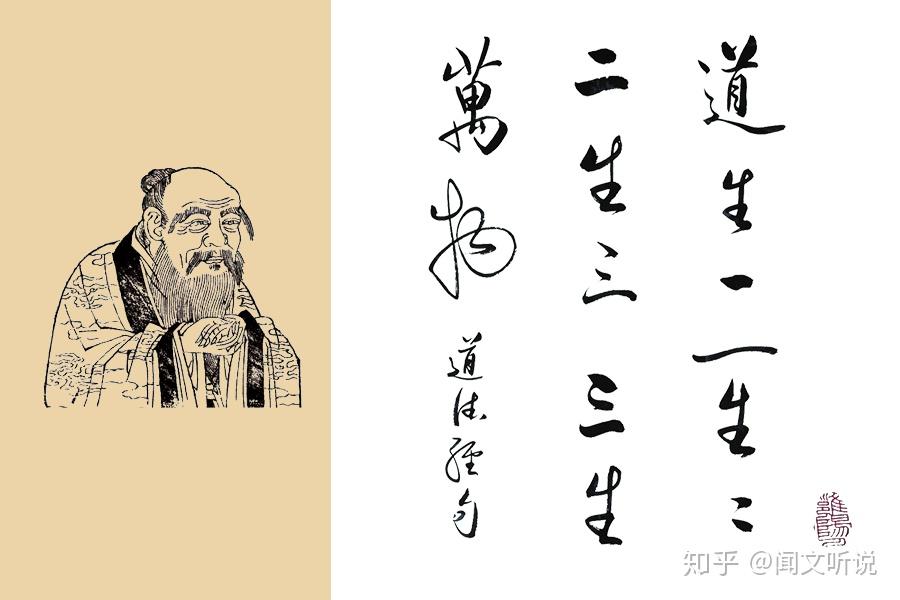 道生一一生二
二生三三生
萬物
道德經句
知乎 @闻文听说